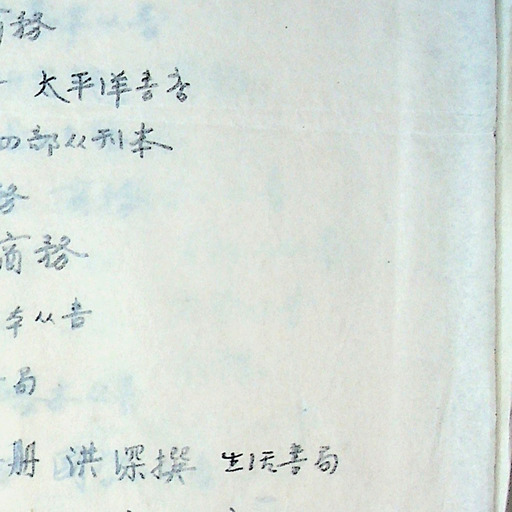 商務
太平洋書店
四部丛刊本
務
商務
本丛書
局
册 洪深撰 生活書局